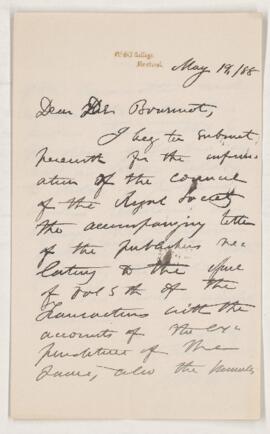 McGill College,
Montreal.
May 19/88
Dear Dr Bourinot,
I beg to submit
herewith for the inform-
ation of the council
of the Royal Society
the accompanying letter
of the publishers re-
lating to the issue
of Vol 5th of the
Transactions with the
accounts of the ex-
penditure of the
same, also the